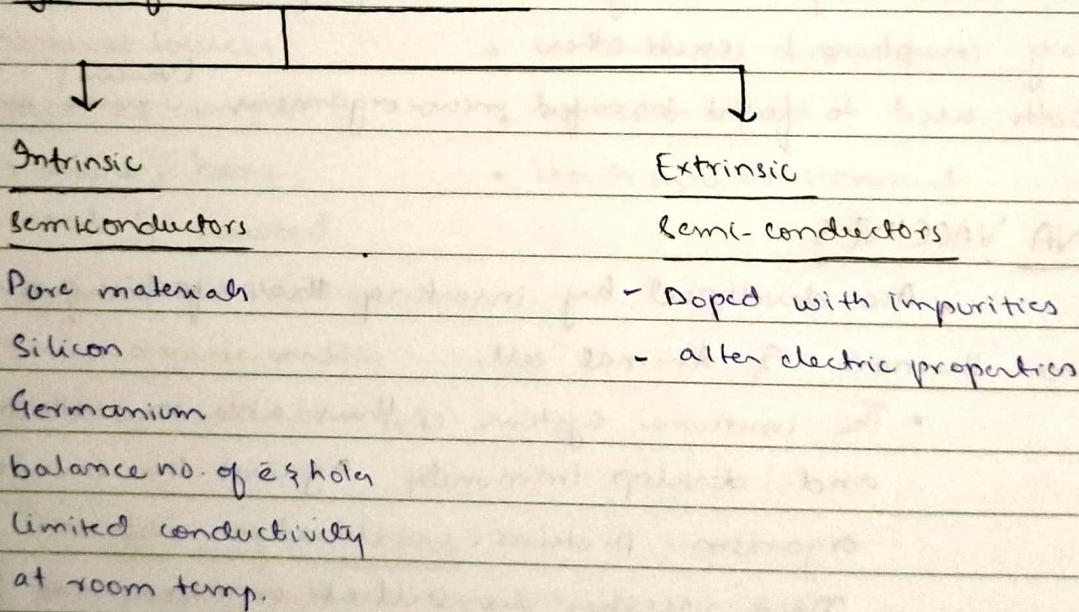 Intrinsic
Semiconductors
Pure materials
Silicon
Germanium
balance no. of ē & holes
limited conductivity
at room temp.
Extrinsic
Semi-conductors
- Doped with impurities
- alter electric properties